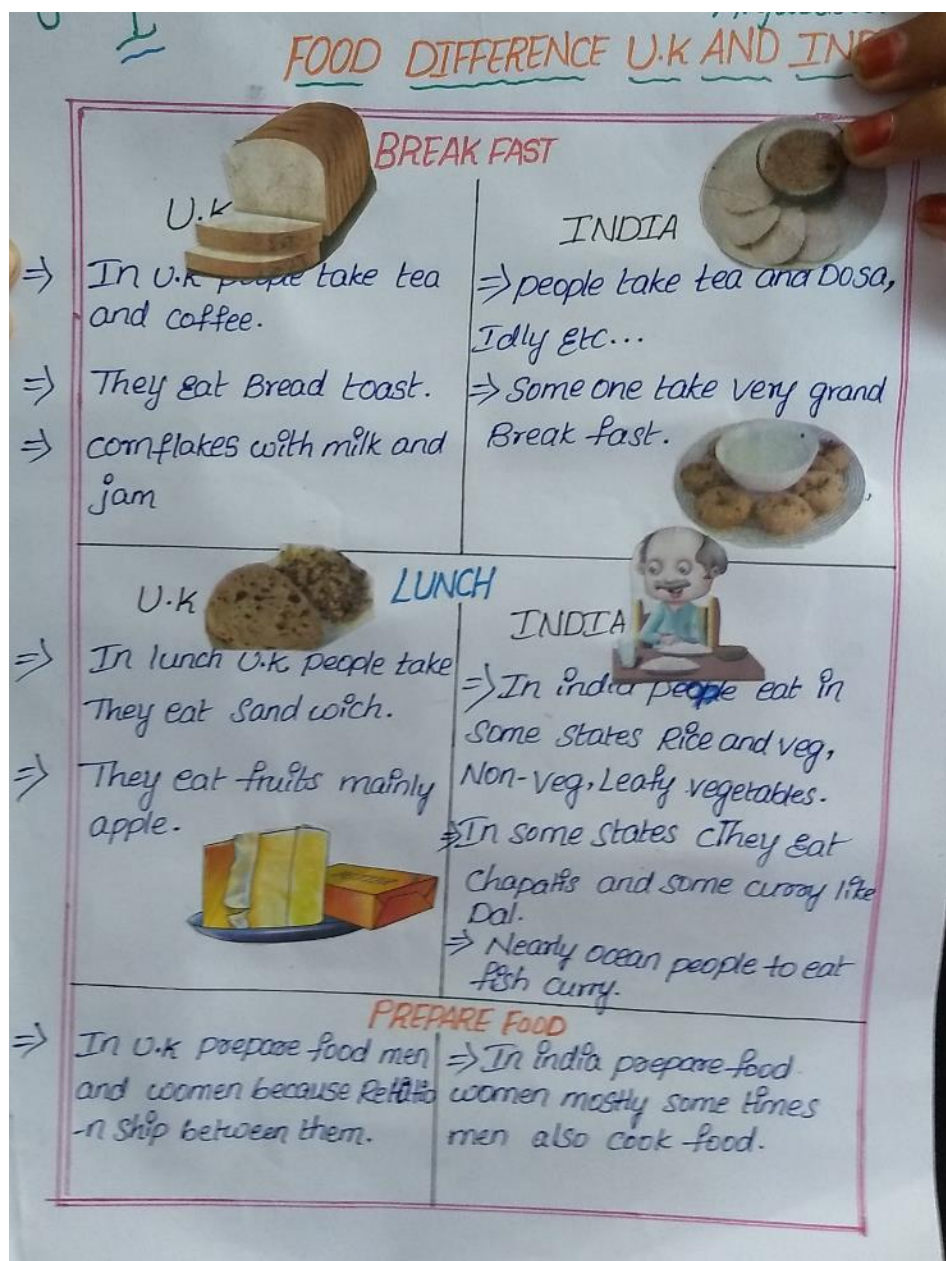 FOOD DIFFERENCE U.K AND IND
BREAK FAST
U.K
In U.K people take tea
and coffee.
They eat Bread toast.
cornflakes with milk and
jam
INDIA
people take tea and Dosa,
Idly Etc...
Some one take very grand
Break fast.
LUNCH
U.K
In lunch U.K people take
They eat Sand wich.
They eat fruits mainly
apple.
INDIA
In india people eat in
Some states Rice and veg,
Non-veg, Leafy vegetables.
In some states They eat
Chapatis and some curry like
Dal.
Nearly ocean people to eat
fish curry.
PREPARE FOOD
In U.K prepare food men
and women because Relatio
-n ship between them.
In india prepare food
women mostly some times
men also cook food.